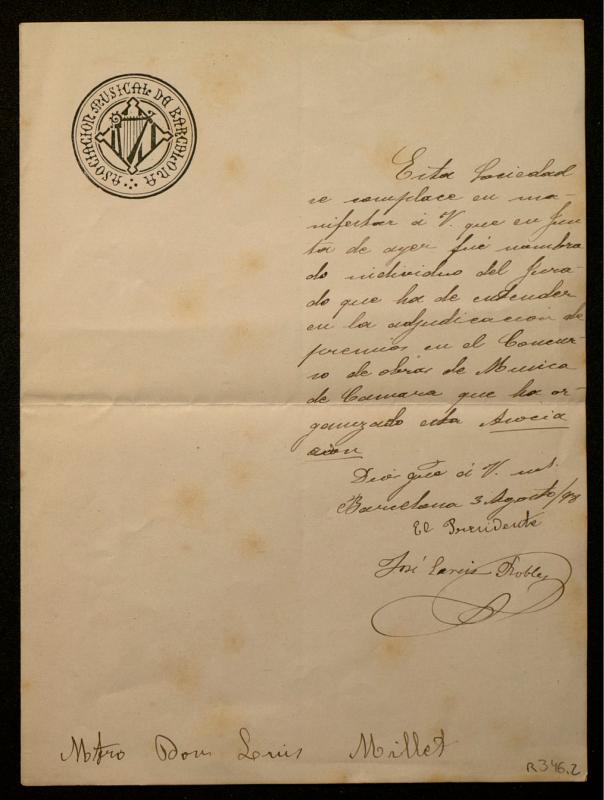 ASOCIACION MUSICAL DE BARCELONA
Esta Sociedad
se complace en ma-
nifestar á V. que en Jun
ta de ayer fué nombra
do individuo del Jura-
do que ha de entender
en la adjudicacion de
premios en el Concur
so de obras de Musica
de Camara que ha or-
ganizado esta Asocia
cion
Dios gue á V. ms. 
Barcelona 3 Agosto/98
El Presidente
José Robles
Mtro Don Luis Millet
R346.2